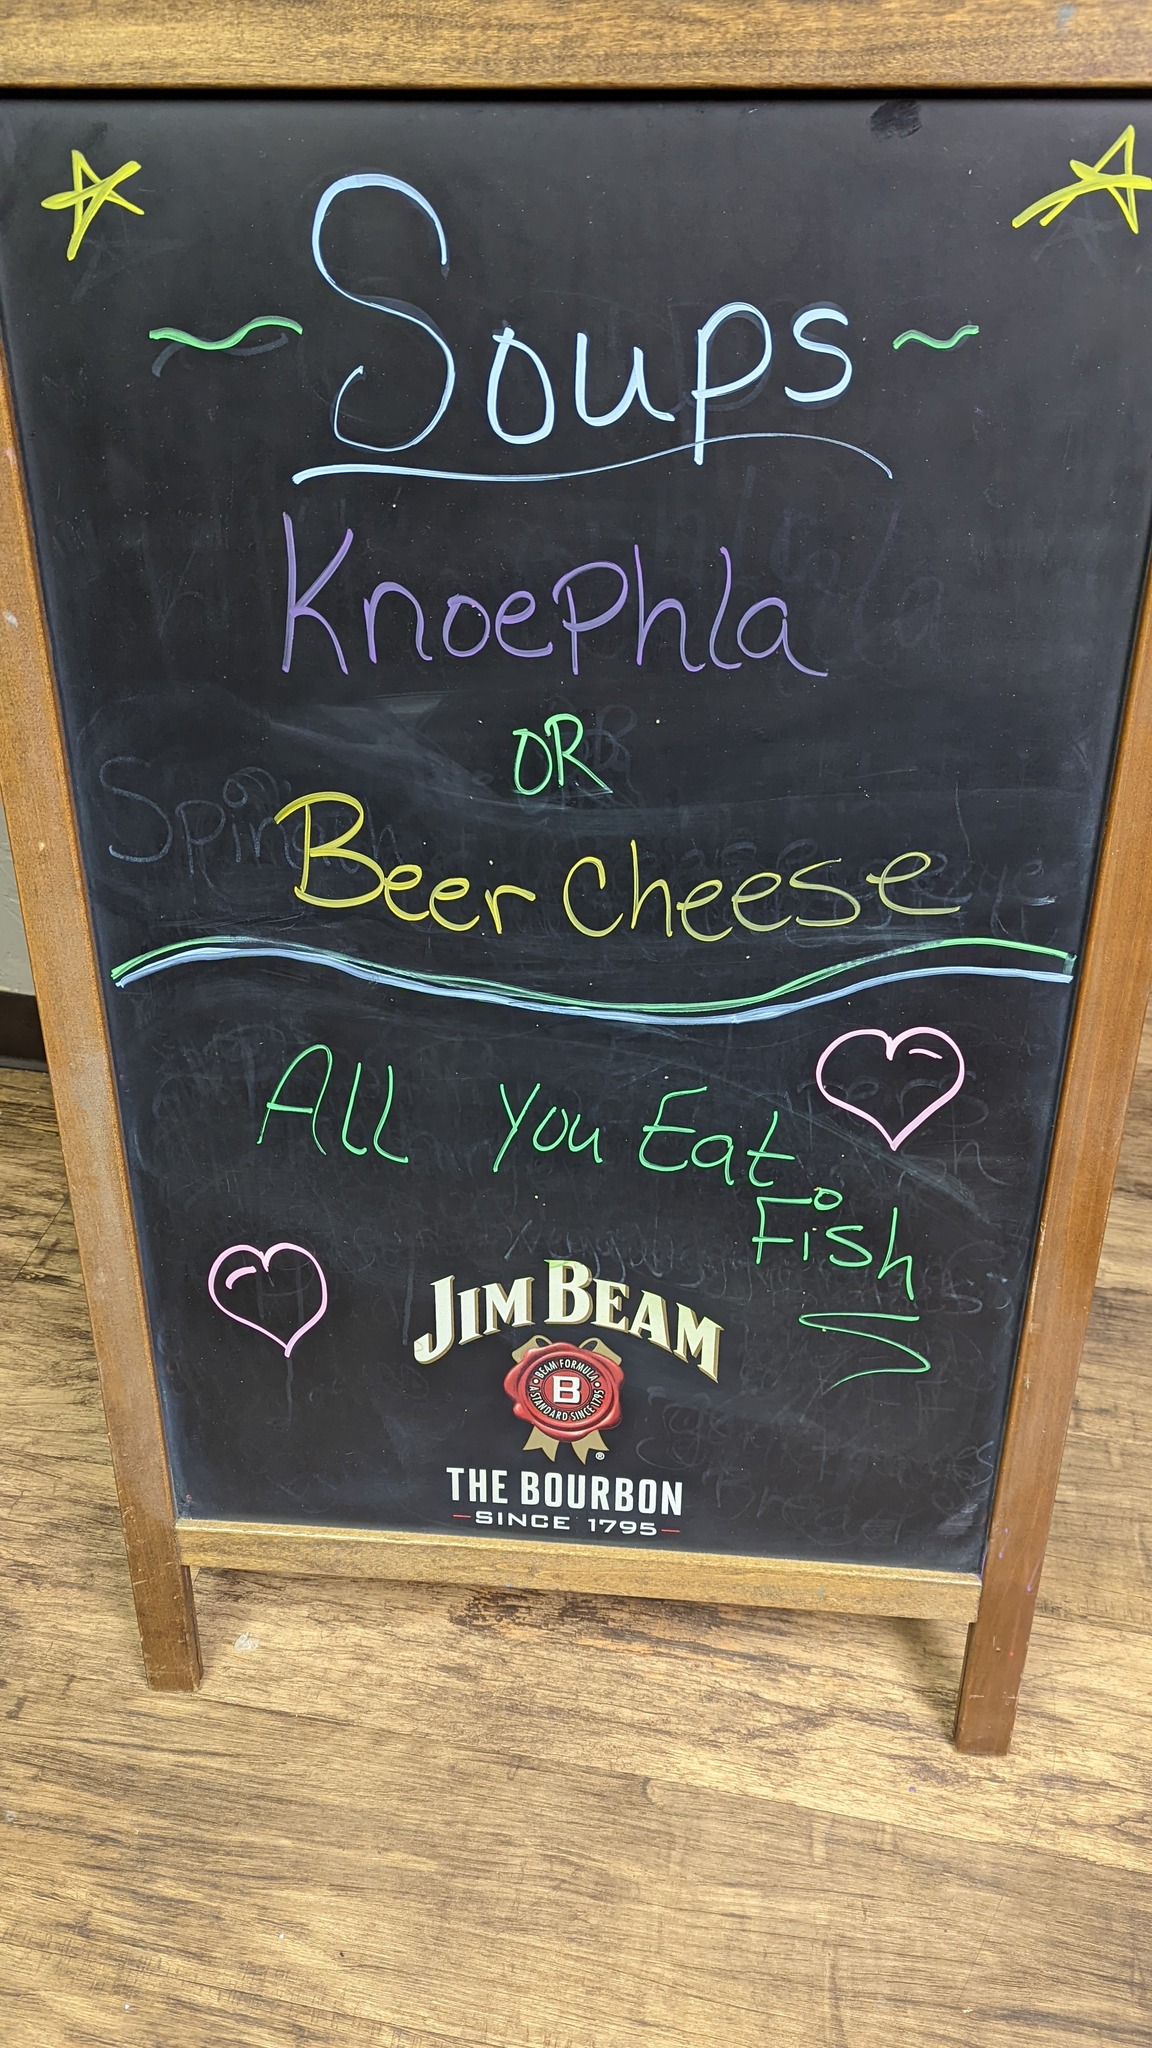 Soups
Knoephla
OR
Beer Cheese
All You Eat
Fish
JIM BEAM
BEAM FORMULA
B
A STANDARD SINCE 1795
®
THE BOURBON
SINCE 1795